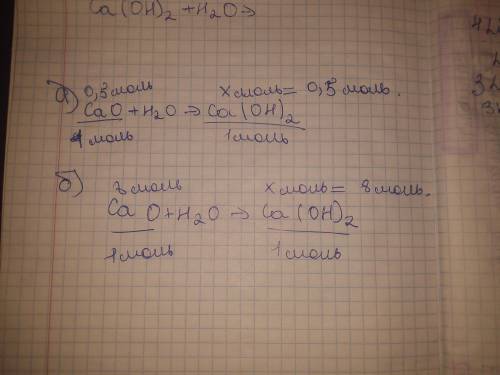 Ca(OH)₂ + H₂O →
а) 0,5 моль x моль = 0,5 моль.
CaO + H₂O → Ca(OH)₂
1 моль 1 моль
б) 8 моль x моль = 8 моль.
CaO + H₂O → Ca(OH)₂
1 моль 1 моль